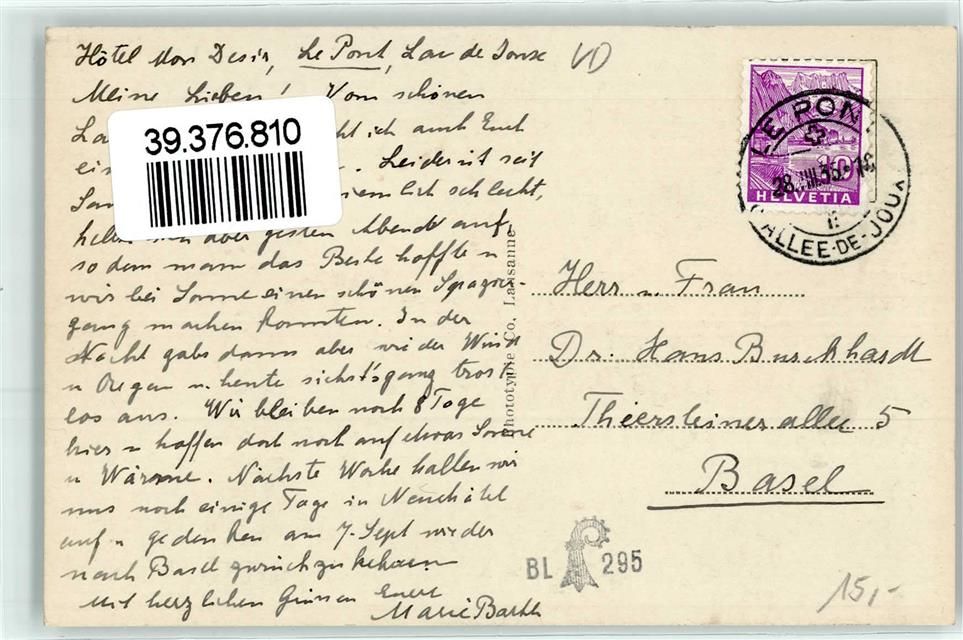 Hôtel Mon Desir, Le Pont, Lac de Joux
VD
Meine Lieben! Vom schönen
ich auch Euch
39.376.810
Leider ist seit
ziemlich schlecht,
aber gestern Abend auf,
so dem man das Beste hoffte u
wir bei Sonne einen schönen Spazier-
gang machen konnten. In der
Nacht gabs dann aber wieder Wind
u Regen u. heute sieht's ganz trost-
los aus. Wir bleiben noch 8 Tage
hier u hoffen doch noch auf etwas Sonne
u Wärme. Nächste Woche halten wir
uns noch einige Tage in Neuchâtel
auf u gedenken am 7. Sept wieder
nach Basel zurückzukehren
Mit herzlichen Grüssen Euere
Marie Barth
Phototypie Co, Lausanne
LE PONT
28.VIII.35.-16
VALLEE-DE-JOUX
10
HELVETIA
Herr u. Frau
Dr. Hans Burckhardt
Thiersteinerallee 5
Basel
BL 295
15,-